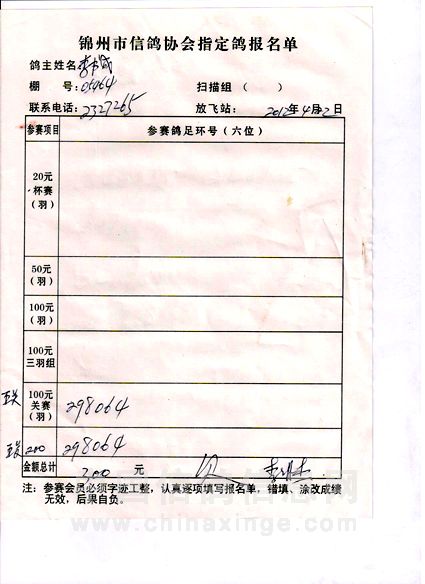 锦州市信鸽协会指定鸽报名单
鸽主姓名:
棚 号:05064 扫描组（ ）
联系电话:2327265 放飞站: 2012年4月22日
参赛项目 参赛鸽足环号(六位)
20元
杯赛
(羽)
50元
(羽)
100元
(羽)
100元
三羽组
100元
关赛
(羽)
298064
200 298064
金额总计 300 元
注：参赛会员必须字迹工整，认真逐项填写报名单，错填、涂改成绩
无效，后果自负。
www.chinaxinge.com